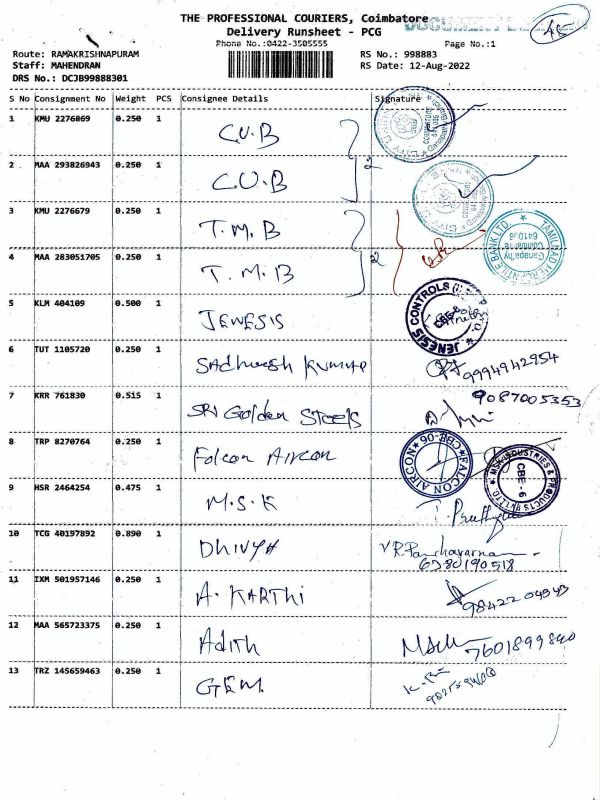 THE PROFESSIONAL COURIERS, Coimbatore
Delivery Runsheet - PCG
Phone No.:0422-3505555 Page No.:1
Route: RAMAKRISHNAPURAM RS No.: 998883
Staff: MAHENDRAN RS Date: 12-Aug-2022
DRS No.: DCJB99888301
S No Consignment No Weight PCS Consignee Details Signature
1 KMU 2276869 0.250 1 C.U.B
2 MAA 293826943 0.250 1 C.U.B
2
3 KMU 2276679 0.250 1 T.M.B
TAMILNAD MERCANTILE BANK LTD
Ganapathy
4 MAA 283051705 0.250 1 T.M.B
2
5 KLM 404109 0.500 1 JENESIS
JENESIS CONTROLS
6 TUT 1105720 0.250 1 Sadheesh Kumar 9994942954
7 KRR 761830 0.515 1 SRI Golden Steels 9087005353
8 TRP 8270764 0.250 1 Falcon Aircon
FALCON AIRCON CBE-06
9 HSR 2464254 0.475 1 M.S.K
MSK INDUSTRIES & PRODUCTS CBE - 6
10 TCG 40197892 0.890 1 Dhivya
6380190518
11 IXM 501957146 0.250 1 A. KARTHI
12 MAA 565723375 0.250 1 Adith
13 TRZ 145659463 0.250 1 GEM